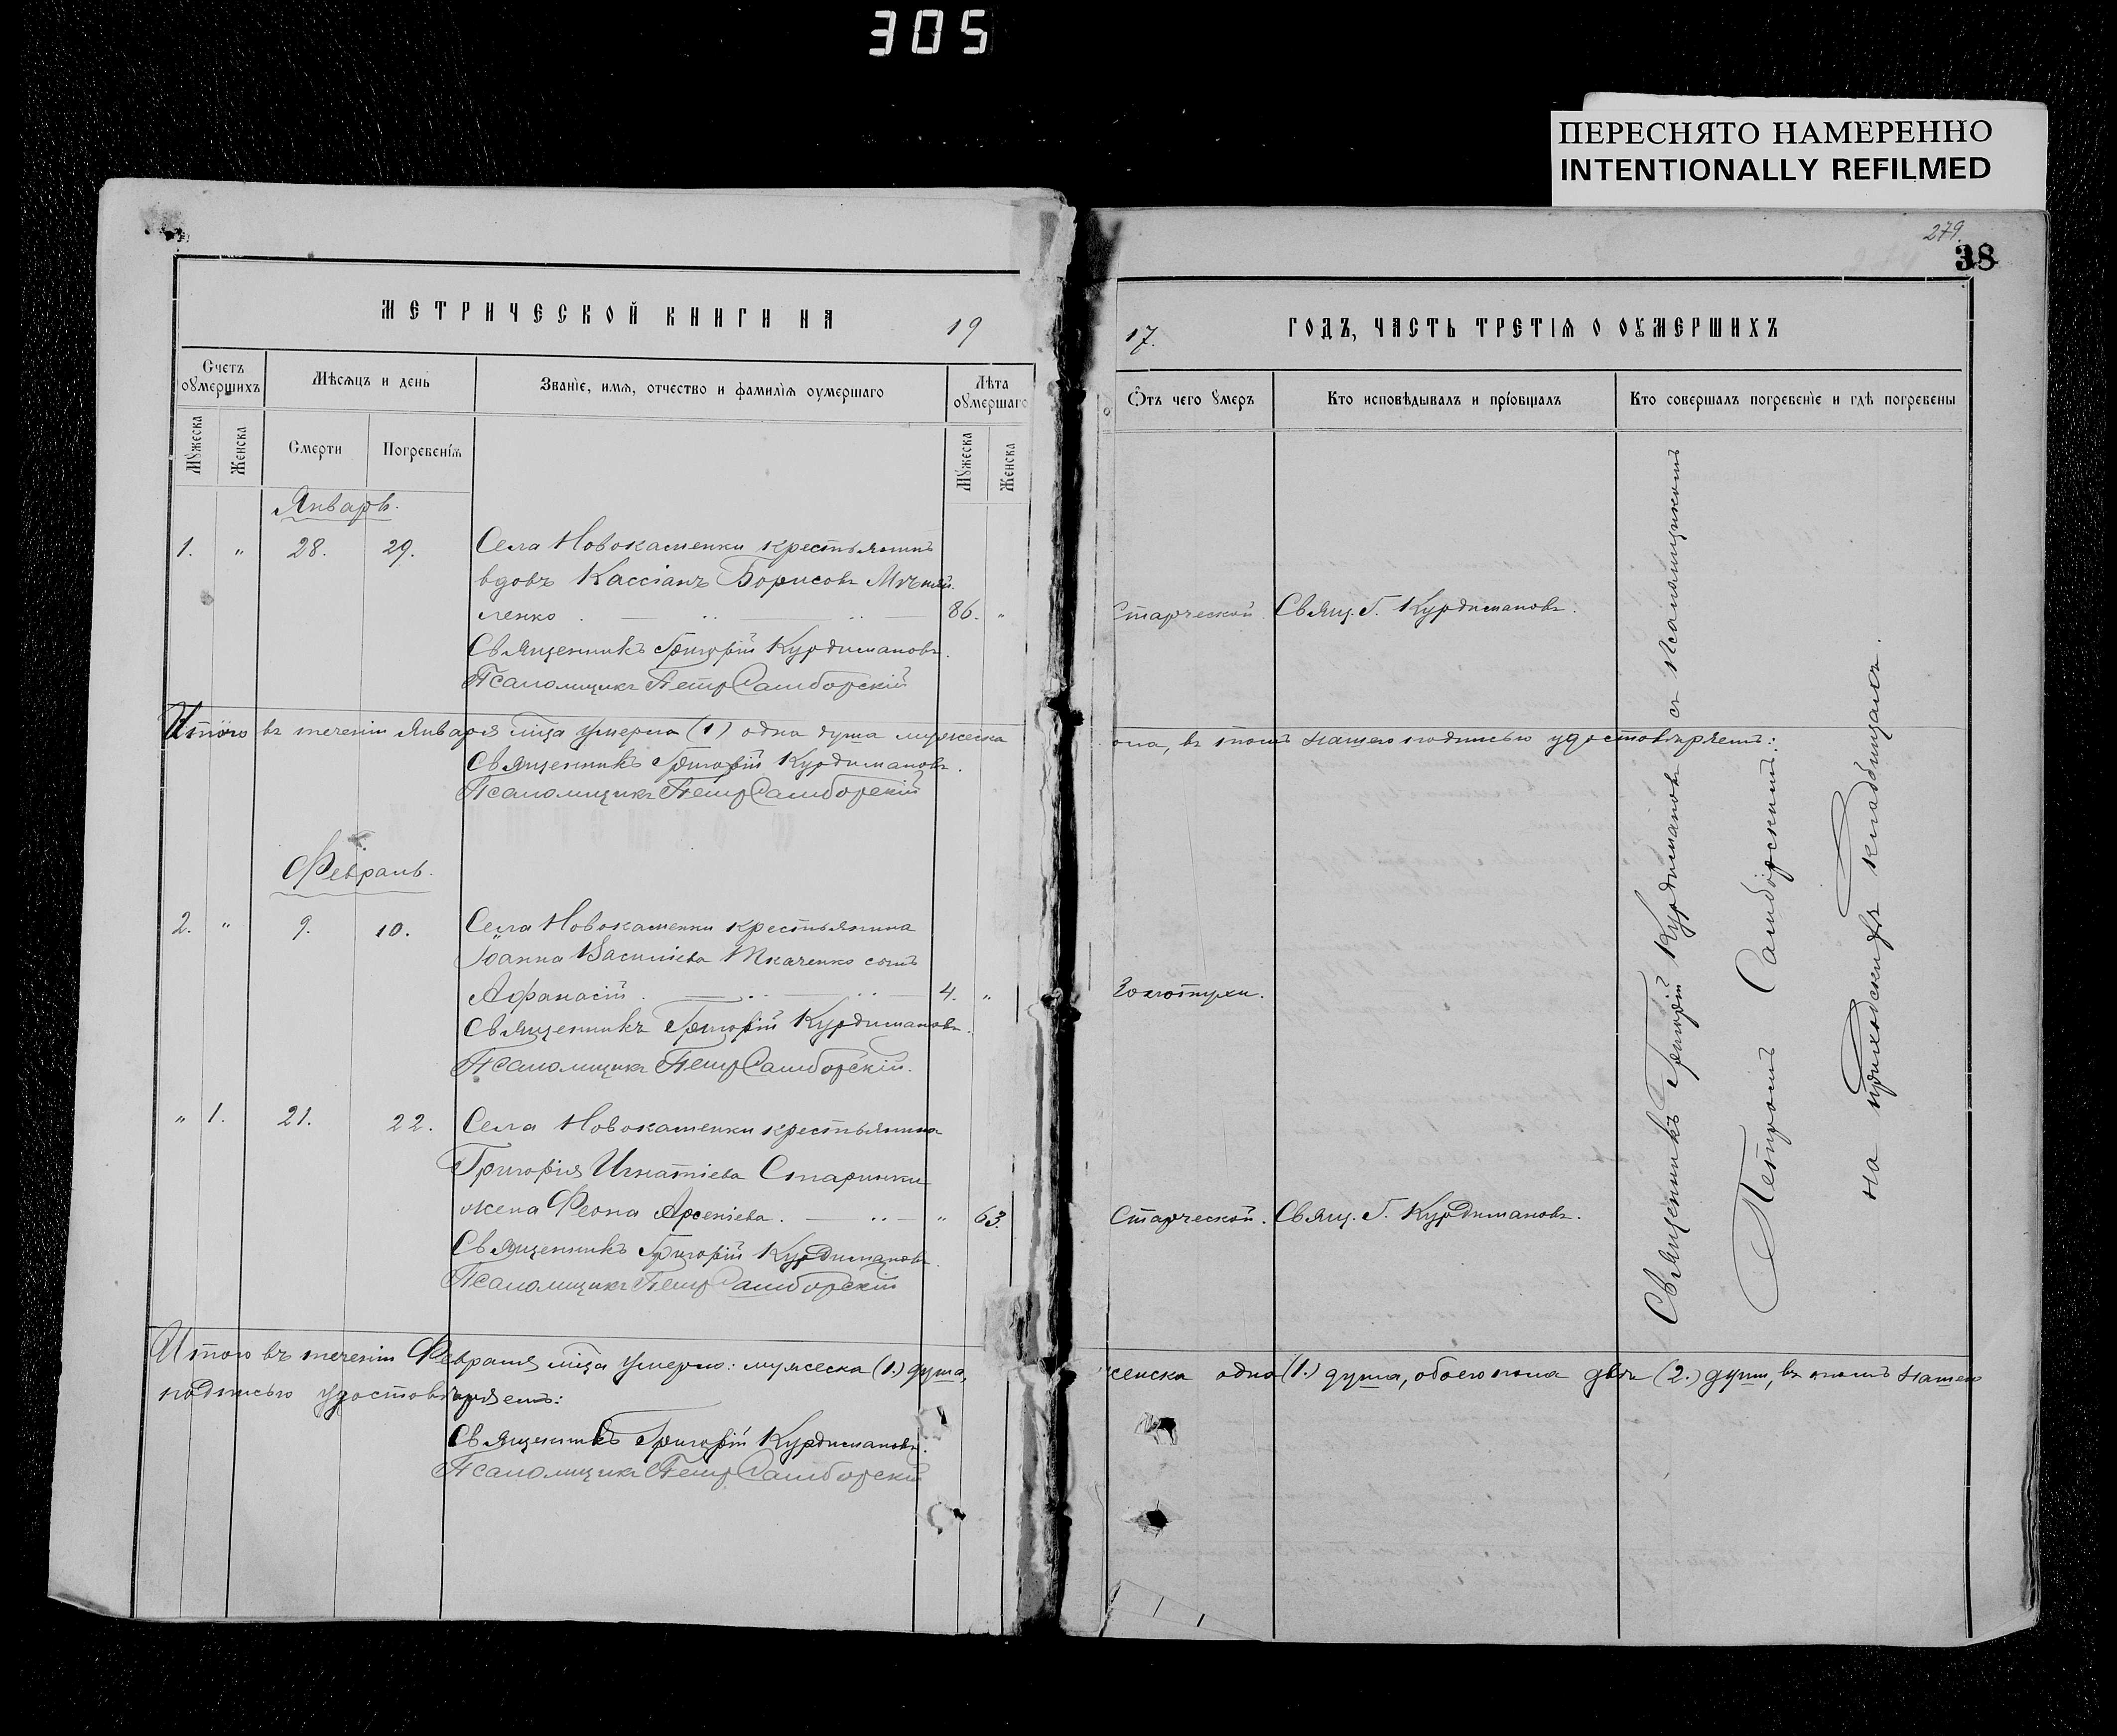 305
ПЕРЕСНЯТО НАМЕРЕННО
INTENTIONALLY REFILMED
279.
38
МЕТРИЧЕСКОЙ КНИГИ НА 19
17. ГОДЪ, ЧАСТЬ ТРЕТІѦ О ОУМЕРШИХЪ
Счетъ оумершихъ
Мѣсѧцъ и день
Званіе, имѧ, отчество и фамиліѧ оумершаго
Лѣта оумершаго
Ѿтъ чего умеръ
Кто исповѣдывалъ и пріобщалъ
Кто совершалъ погребеніе и гдѣ погребены
Мужеска
Женска
Смерти
Погребеніѧ
Мужеска
Женска
Январь.
1. " 28. 29. Села Новокаменки крестьянинъ
вдовъ Кассіанъ Борисовъ
ленко 86. " Старческой Свящ. Г. Курдимановъ.
Священникъ Григорій Курдимановъ.
Псаломщикъ Петръ Самборскій
Итого въ теченіи Января м-ца умерла (1) одна душа мужеска
пола, въ томъ нашею подписью удостовѣряемъ:
Священникъ Григорій Курдимановъ.
Псаломщикъ Петръ Самборскій
Февраль.
2. " 9. 10. Села Новокаменки крестьянина
Іоанна Василіева Ткаченко сынъ
Афанасій. 4. " Золотухи.
Священникъ Григорій Курдимановъ.
Псаломщикъ Петръ Самборскій.
" 1. 21. 22. Села Новокаменки крестьянина
Григорія Игнатіева
жена Феона Арсеніева. " 63. Старческой. Свящ. Г. Курдимановъ.
Священникъ Григорій Курдимановъ.
Псаломщикъ Петръ Самборскій
Священникъ Григорій Курдимановъ съ псаломщикомъ
Петромъ Самборскимъ.
на приходскомъ кладбищѣ.
Итого въ теченіи Февраля м-ца умерло: мужеска (1.) душа,
женска одна (1.) душа, обоего пола двѣ (2.) души, въ томъ нашею
подписью удостовѣряемъ:
Священникъ Григорій Курдимановъ.
Псаломщикъ Петръ Самборскій